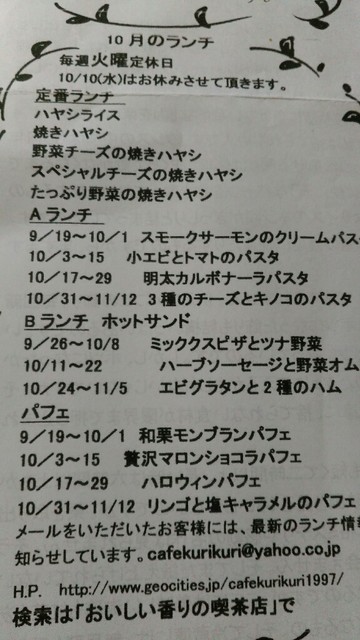 10月のランチ
毎週火曜定休日
10/10(水)はお休みさせて頂きます。
定番ランチ
ハヤシライス
焼きハヤシ
野菜チーズの焼きハヤシ
スペシャルチーズの焼きハヤシ
たっぷり野菜の焼きハヤシ
Aランチ
9/19~10/1 スモークサーモンのクリームパス
10/3~15 小エビとトマトのパスタ
10/17~29 明太カルボナーラパスタ
10/31~11/12 3種のチーズとキノコのパスタ
Bランチ ホットサンド
9/26~10/8 ミックスピザとツナ野菜
10/11~22 ハーブソーセージと野菜オム
10/24~11/5 エビグラタンと2種のハム
パフェ
9/19~10/1 和栗モンブランパフェ
10/3~15 贅沢マロンショコラパフェ
10/17~29 ハロウィンパフェ
10/31~11/12 リンゴと塩キャラメルのパフェ
メールをいただいたお客様には、最新のランチ情
知らせしています。cafekurikuri@yahoo.co.jp
H.P. http://www.geocities.jp/cafekurikuri1997/
検索は「おいしい香りの喫茶店」で